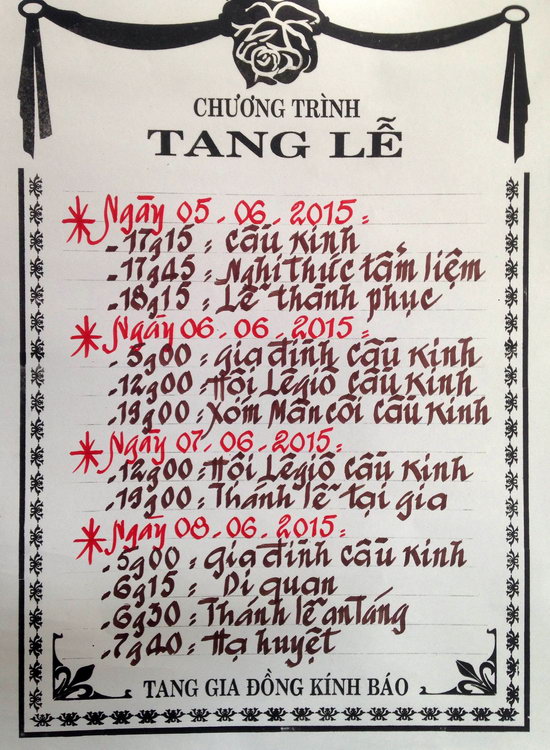 CHƯƠNG TRÌNH
TANG LỄ
* Ngày 05.06.2015:
- 17g15: Cầu kinh
- 17g45: Nghi thức tẩm liệm
- 18g15: Lễ thành phục
* Ngày 06.06.2015:
- 5g00: gia đình cầu kinh
- 12g00: Hội Lêgiô cầu kinh
- 19g00: Xóm Mân côi cầu kinh
* Ngày 07.06.2015:
- 12g00: Hội Lêgiô cầu kinh
- 19g00: Thánh lễ tại gia
* Ngày 08.06.2015:
- 5g00: gia đình cầu kinh
- 6g15: Di quan
- 6g30: Thánh lễ an táng
- 7g40: Hạ huyệt
TANG GIA ĐỒNG KÍNH BÁO